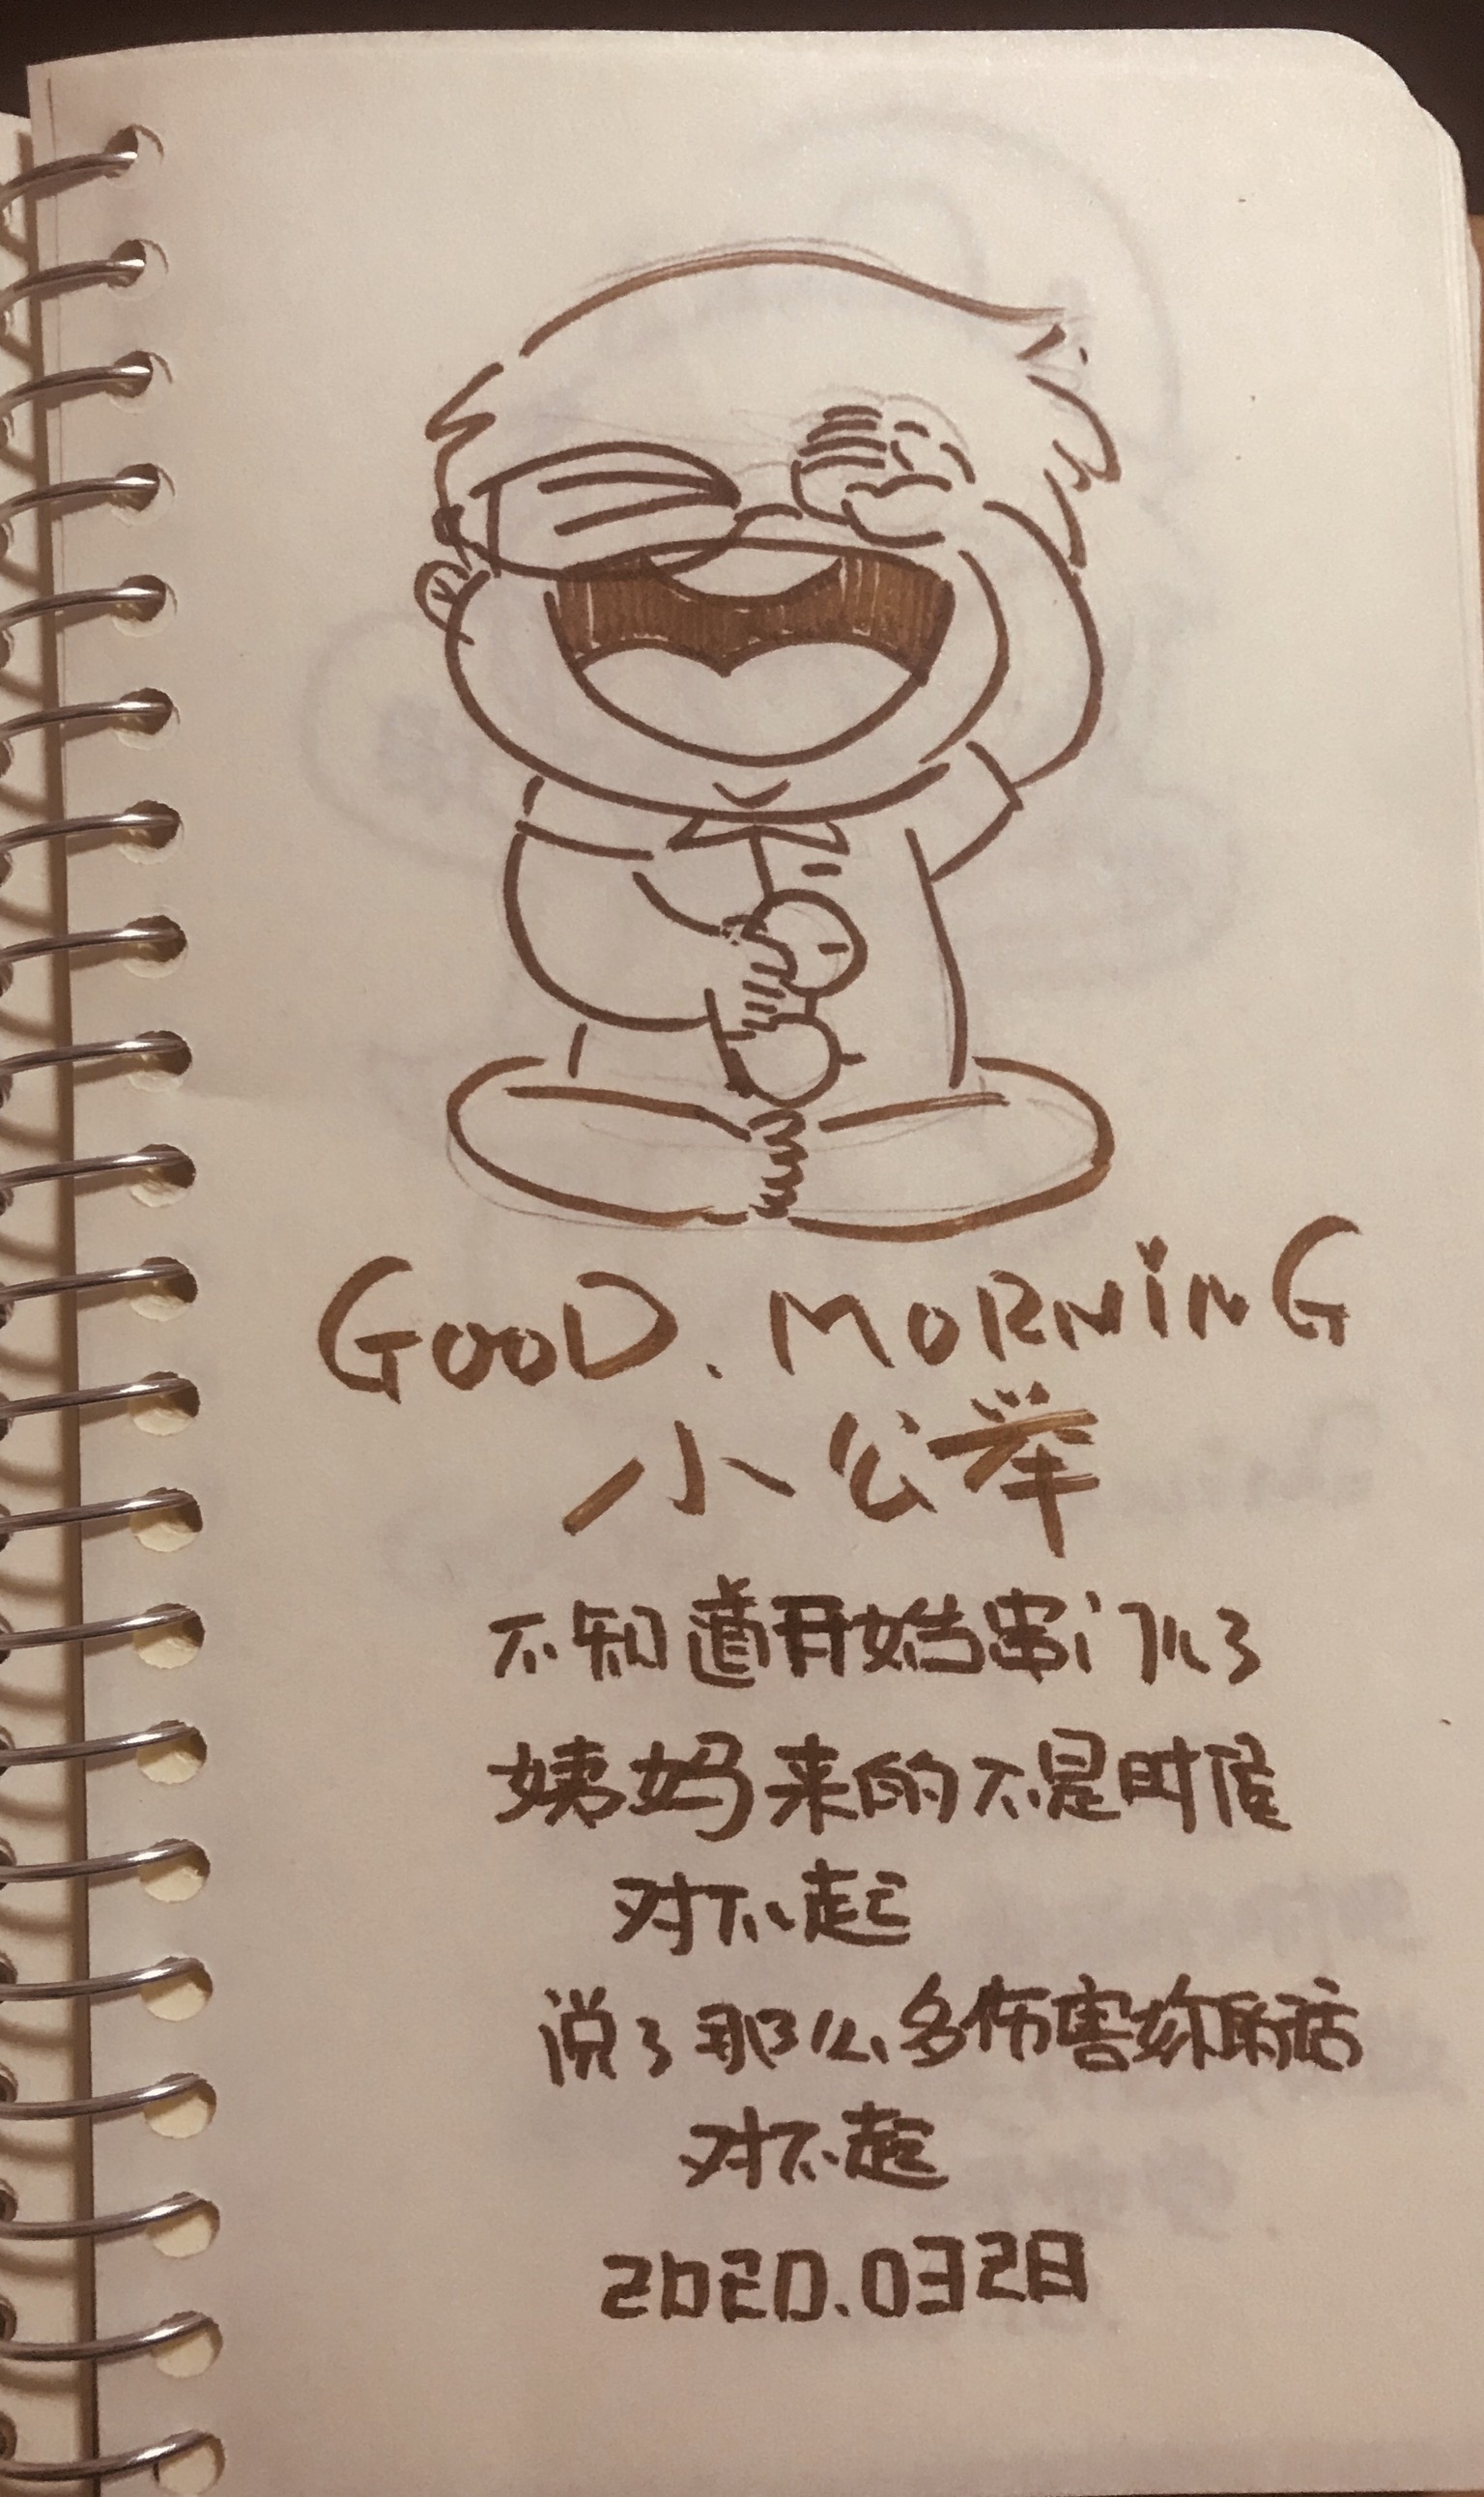 GOOD. MORNiNG
小公举
不知道开始串门儿了
姨妈来的不是时候
对不起
说了那么多伤害妳的话
对不起
2020.0328